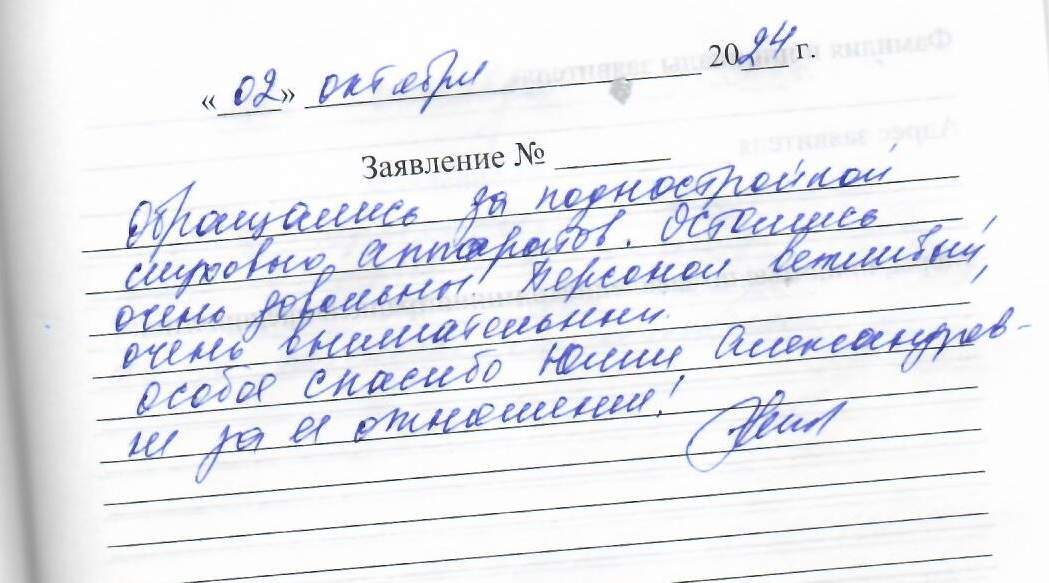 «02» октября 2024 г.
Заявление №
Обращались за поднастройкой
слуховых аппаратов. Остались
очень довольны! Персонал вежливый,
очень внимательный.
особое спасибо Юлии Александров-
не за её отношение!